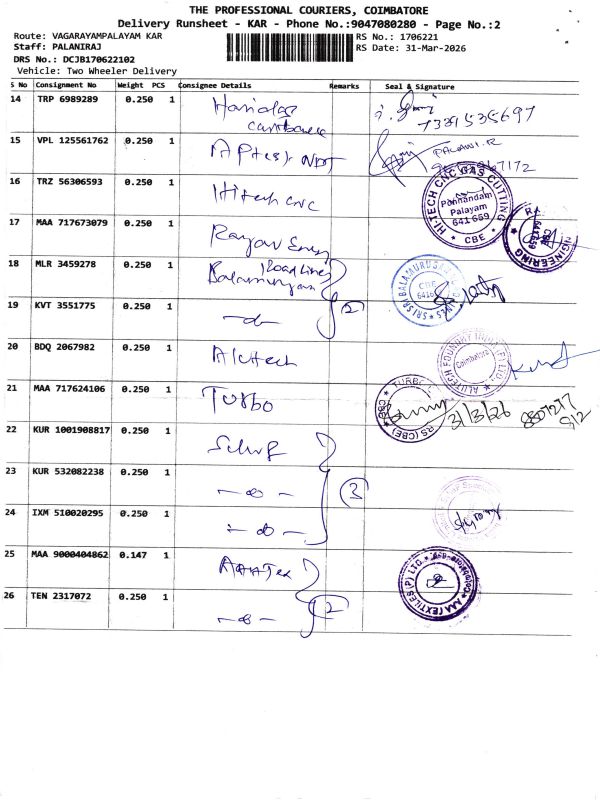 THE PROFESSIONAL COURIERS, COIMBATORE
Delivery Runsheet - KAR - Phone No.:9047080280 - Page No.:2
Route: VAGARAYAMPALAYAM KAR
RS No.: 1706221
Staff: PALANIRAJ
RS Date: 31-Mar-2026
DRS No.: DCJB170622102
Vehicle: Two Wheeler Delivery
S No Consignment No Weight PCS Consignee Details Remarks Seal & Signature
14 TRP 6989289 0.250 1
7339535697
15 VPL 125561762 0.250 1
PALANI.R
16 TRZ 56306593 0.250 1 Hitech CNC
HI-TECH CNC GAS CUTTING
Ponnandam
Palayam
641 659
CBE
17 MAA 717673079 0.250 1
18 MLR 3459278 0.250 1 Road Lines
Balamurugan
CBE
19 KVT 3551775 0.250 1 -do- 2
20 BDQ 2067982 0.250 1 Alutech
Coimbatore
21 MAA 717624106 0.250 1 Turbo
31/3/26
22 KUR 1001908817 0.250 1
23 KUR 532082238 0.250 1 -do- 3
24 IXM 510020295 0.250 1 -do-
25 MAA 9000404862 0.147 1
AAA TEXTILES (P) LTD.
26 TEN 2317072 0.250 1 -do- 2